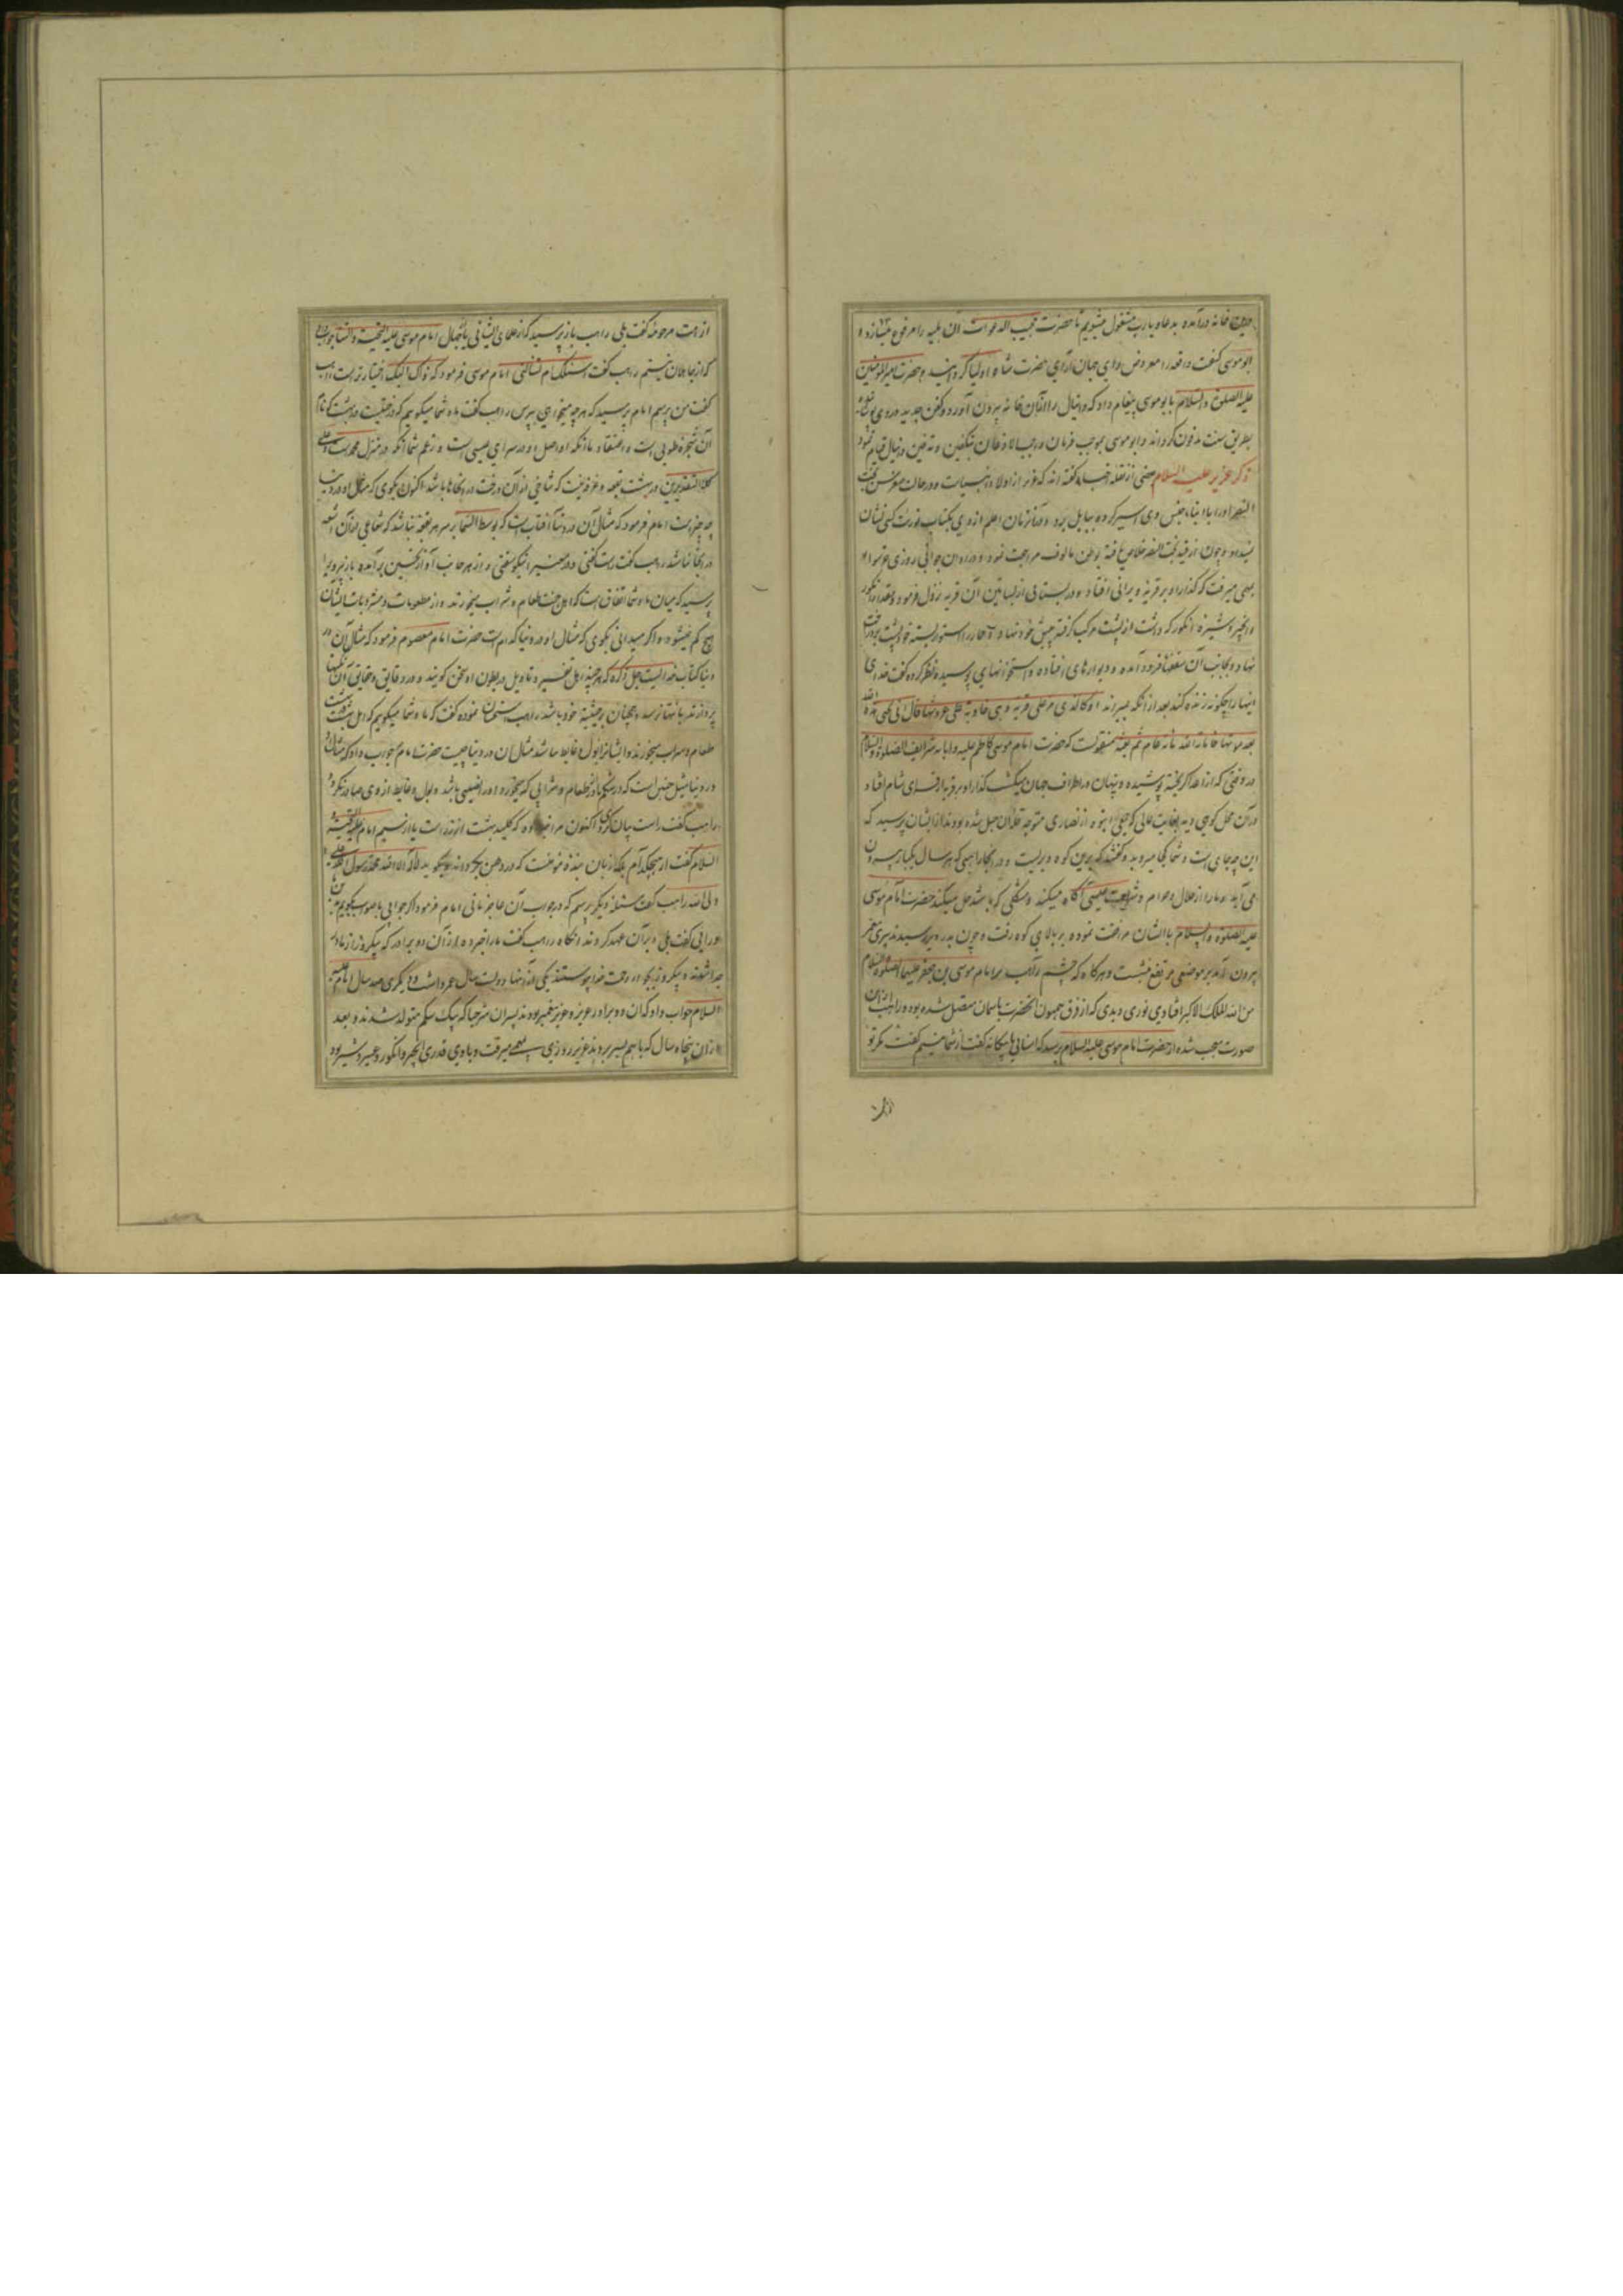 خانه درآمده بدعا و یارب مشغول میشویم تا حضرت مجیب الدعوات آن بلیه را مرفوع میسازد و
ابو موسی کیفیت واقعه را معروض رای جهان آرای حضرت شاه اولیا گردانید و حضرت امیر المؤمنین
علیه الصلوة والسلام بابو موسی پیغام داد که دانیال را از آن خانه بیرون آورد و کفن جدید در وی
بطریق سنت مدفون گرداند و ابو موسی بموجب فرمان واجب الاذعان بتکفین و تدفین دانیال قیام نمود
ذکر عزیر علیه السلام بعضی از نقله اخبار گفته اند که عزیر از اولاد انبیاست و در
النصر او را با ابناء جنس وی اسیر کرده ببابل برد و در آنزمان اعلم از وی بکتاب تورات کسی نشان
نمیداد و چون از قید بخت النصر خلاص یافته بوطن مالوف مراجعت نمود و در اوان جوانی روزی
بمهمی میرفت که گذار او بر قریه ویرانی افتاد و در بستانی از بساتین آن قریه نزول فرمود و قدری انگور
و انجیر و شیره انگور که داشت از پشت مرکب گرفته پیش خود نهاد و
نهاد و بجانب آن سقفهای فرود آمده و دیوارهای افتاده و استخوانهای پوسیده نظر کرده گفت خدای
اینها را چگونه زنده کند بعد از آنکه بمیراند او کالذی مر علی قریة و هی خاویة علی عروشها قال انی یحیی هذه الله
بعد موتها فاماته الله مائة عام ثم بعثه منقولست که حضرت امام موسی کاظم علیه و آبائه شرایف الصلوة والسلام
در وقتی که از اعدا گریخته پوشیده و پنهان در اطراف جهان میگشت گذار او بر قریه از قرای شام افتاد
و در آن محل کوهی دید بغایت عالی که جمعی انبوه از نصاری متوجه قله آن جبل شده بودند از ایشان پرسید که
این چه جای است و شما کجا میروید گفتند که برین کوه دیریست و در آنجا راهبی که هر سال یکبار بیرون
می آید و ما را از حلال و حرام و شریعت عیسی آگاه میکند و مشکلی که باشد حل میکند حضرت امام موسی
علیه الصلوة والسلام با ایشان مرافقت نموده بر بالای کوه رفت و چون بدر دیر رسیدند پیری
بیرون آمد بر موضعی مرتفع نشست و هرگاه که چشم راهب بر امام موسی بن جعفر علیهما الصلوة والسلام
من الله الملک الاکبر افتادی نوری دیدی که از فرق همیون آنحضرت بآسمان متصل شده بود و راهب از آن
صورت متعجب شده از حضرت امام موسی علیه السلام پرسید که آشنایی یا بیگانه گفت از شما نیستم گفت مگر تو
از امت مرحومه گفت بلی راهب باز پرسید که از علمای ایشانی یا جهال امام موسی علیه التحیة والثنا جواب داد
که از جاهلان نیستم راهب گفت اسئلک ام تسألنی امام موسی فرمود که ذاک الیک اختیار تراست راهب
گفت من پرسم امام پرسید که هرچه میخواهی بپرس راهب گفت ما و شما میگوییم که درختیست در بهشت که نام
آن شجره طوبی است و اعتقاد ما آنکه او اصل او در سرای عیسی است و زعم شما آنکه در منزل محمد است و علی
کلا التقدیرین در بهشت بقعه و غرفه نیست که شاخی از آن درخت در آنجا نباشد اکنون بگوی که مثال او در دنیا
چه چیز است امام فرمود که مثال آن در دنیا آفتاب است که بوسط السما بر سر هر بقعه نباشد که شعاعی از آن اشعه
در آنجا نباشد راهب گفت راست گفتی و در معنی را نیکو سفتی و از هر جانب آواز تحسین برآمده باز پیر دیر
پرسید که میان ما و شما اتفاق است که اهل جنت طعام و شراب میخورند و از مطعومات و مشروبات ایشان
هیچ کم نمیشود و اگر میدانی بگوی که مثال او در دنیا کدام است حضرت امام معصوم فرمود که مثال آن در
دنیا کتاب خدا است جل ذکره که هر چند اهل تفسیر و تاویل در بطون او سخن گویند و در دقایق و حقایق آن
پردازند بانتها نرسد و همچنان بر حیثیه خود باشد راهب استحسان نموده گفت که ما و شما میگوییم که اهل بهشت
طعام و شراب میخورند و ایشانرا بول و غایط نباشد مثال آن در دنیا چیست حضرت امام جواب داد که مثال او
در دنیا مثل جنین است که در شکم مادر طعام و شرابی که میخورد او را نصیبی باشد و بول و غایط از وی صادر نگردد
راهب گفت راست بیان کردی اکنون مرا خبر ده که کلید بهشت از زر است یا از سیم امام علیه التحیة و
السلام گفت از هیچکدام بلکه زبان بنده مؤمنست که در دهن بگرداند و بگوید لا اله الا الله محمد رسول الله علی
ولی الله راهب گفت مسئله دیگر پرسم که در جواب آن عاجز مانی امام فرمود اگر جوابی با صواب بگویم
در آیی گفت بلی و بر آن عهد کردند آنگاه راهب گفت مرا خبر ده از آن دو برادر که بیکروز از مادر
جدا شدند و بیکروز بجوار رحمت خدا پیوستند یکی از آنها دویست سال عمر داشت و دیگری صد سال امام علیه
السلام جواب داد که آن دو برادر عزیر و عزیز پیغمبر بودند پسران شرخیا که بیک شکم متولد شدند و بعد
از آن پنجاه سال که با هم بسر بردند عزیر روزی بمهمی میرفت و با وی قدری انجیر و انگور و عصیر و شیر بود